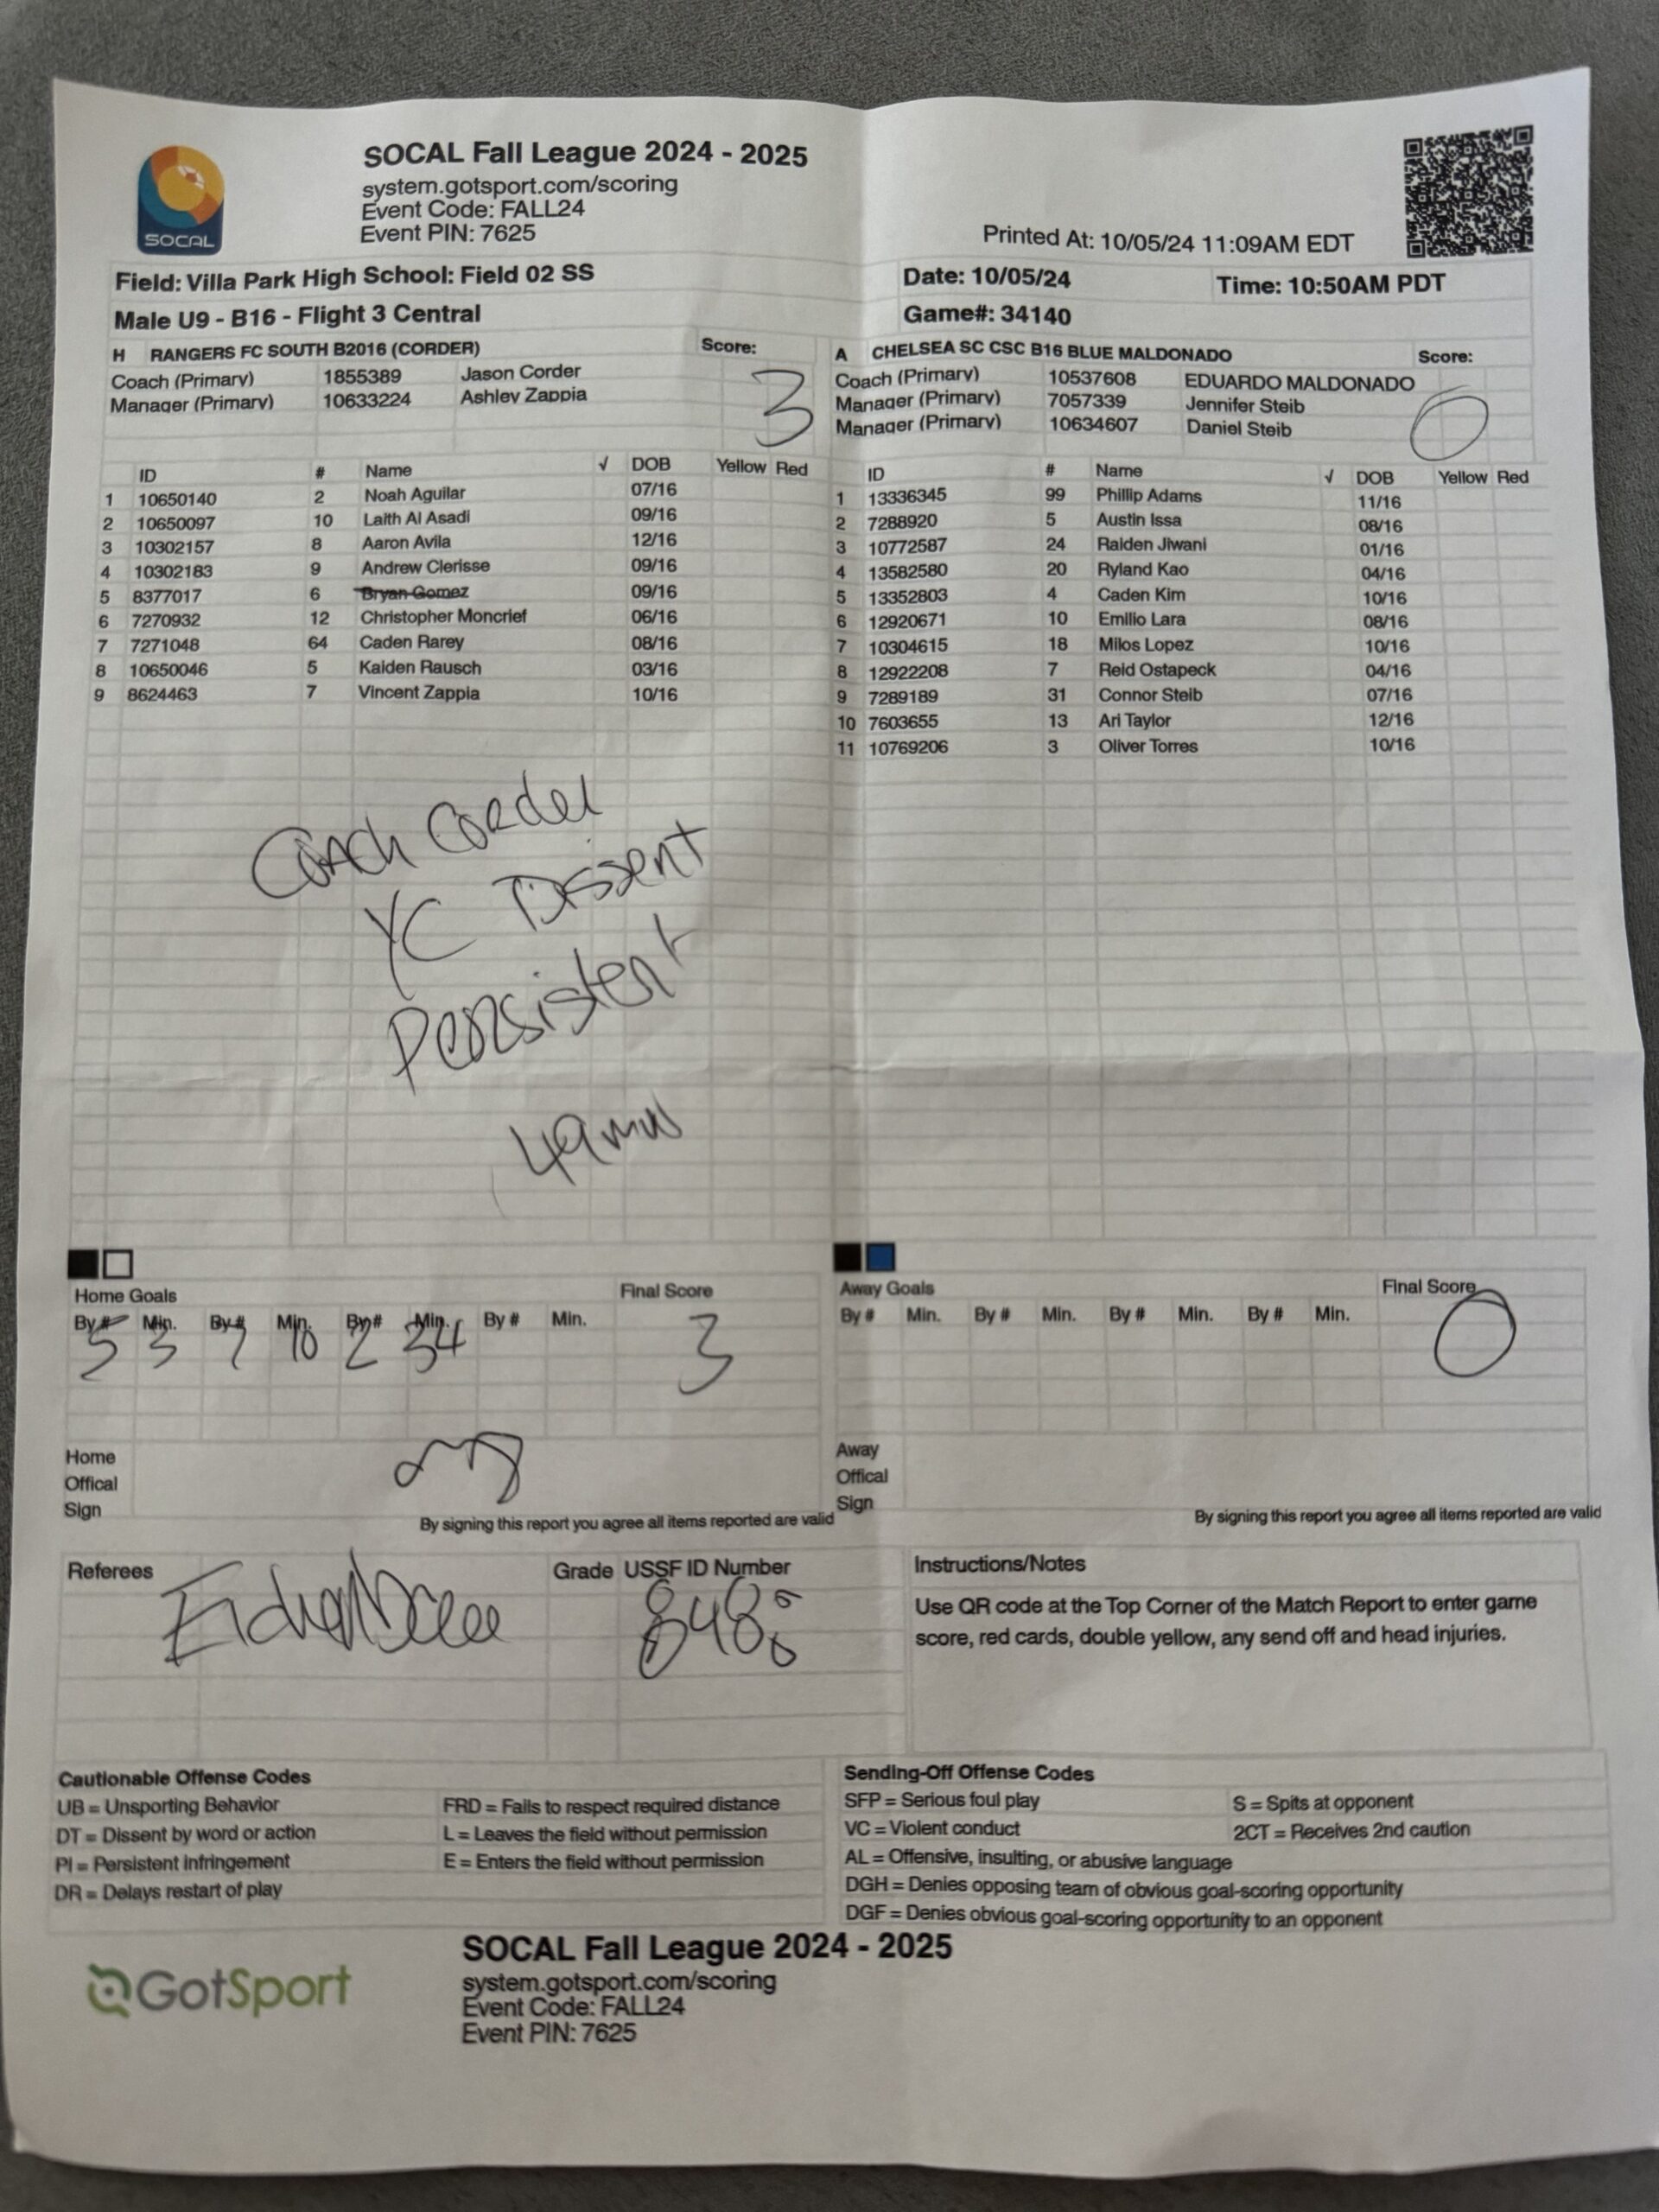 SOCAL Fall League 2024 - 2025
system.gotsport.com/scoring
Event Code: FALL24
Event PIN: 7625
SOCAL
Printed At: 10/05/24 11:09AM EDT
Field: Villa Park High School: Field 02 SS
Date: 10/05/24 Time: 10:50AM PDT
Male U9 - B16 - Flight 3 Central
Game#: 34140
H RANGERS FC SOUTH B2016 (CORDER) Score:
Coach (Primary) 1855389 Jason Corder
Manager (Primary) 10633224 Ashley Zappia
3
ID # Name √ DOB Yellow Red
1 10650140 2 Noah Aguilar 07/16
2 10650097 10 Laith Al Asadi 09/16
3 10302157 8 Aaron Avila 12/16
4 10302183 9 Andrew Clerisse 09/16
5 8377017 6 Bryan Gomez 09/16
6 7270932 12 Christopher Moncrief 06/16
7 7271048 64 Caden Rarey 08/16
8 10650046 5 Kaiden Rausch 03/16
9 8624463 7 Vincent Zappia 10/16
Coach Corder
YC Dissent
Persistent
49 min
A CHELSEA SC CSC B16 BLUE MALDONADO Score:
Coach (Primary) 10537608 EDUARDO MALDONADO
Manager (Primary) 7057339 Jennifer Steib
Manager (Primary) 10634607 Daniel Steib
0
ID # Name √ DOB Yellow Red
1 13336345 99 Phillip Adams 11/16
2 7288920 5 Austin Issa 08/16
3 10772587 24 Raiden Jiwani 01/16
4 13582580 20 Ryland Kao 04/16
5 13352803 4 Caden Kim 10/16
6 12920671 10 Emilio Lara 08/16
7 10304615 18 Milos Lopez 10/16
8 12922208 7 Reid Ostapeck 04/16
9 7289189 31 Connor Steib 07/16
10 7603655 13 Ari Taylor 12/16
11 10769206 3 Oliver Torres 10/16
Home Goals Final Score
By # Min. By # Min. By # Min. By # Min.
5 3 7 10 2 34 3
Home
Offical
Sign
By signing this report you agree all items reported are valid
Away Goals Final Score
By # Min. By # Min. By # Min. By # Min.
0
Away
Offical
Sign
By signing this report you agree all items reported are valid
Referees Grade USSF ID Number
Instructions/Notes
Use QR code at the Top Corner of the Match Report to enter game
score, red cards, double yellow, any send off and head injuries.
Cautionable Offense Codes
UB = Unsporting Behavior FRD = Fails to respect required distance
DT = Dissent by word or action L = Leaves the field without permission
PI = Persistent infringement E = Enters the field without permission
DR = Delays restart of play
Sending-Off Offense Codes
SFP = Serious foul play S = Spits at opponent
VC = Violent conduct 2CT = Receives 2nd caution
AL = Offensive, insulting, or abusive language
DGH = Denies opposing team of obvious goal-scoring opportunity
DGF = Denies obvious goal-scoring opportunity to an opponent
GotSport
SOCAL Fall League 2024 - 2025
system.gotsport.com/scoring
Event Code: FALL24
Event PIN: 7625